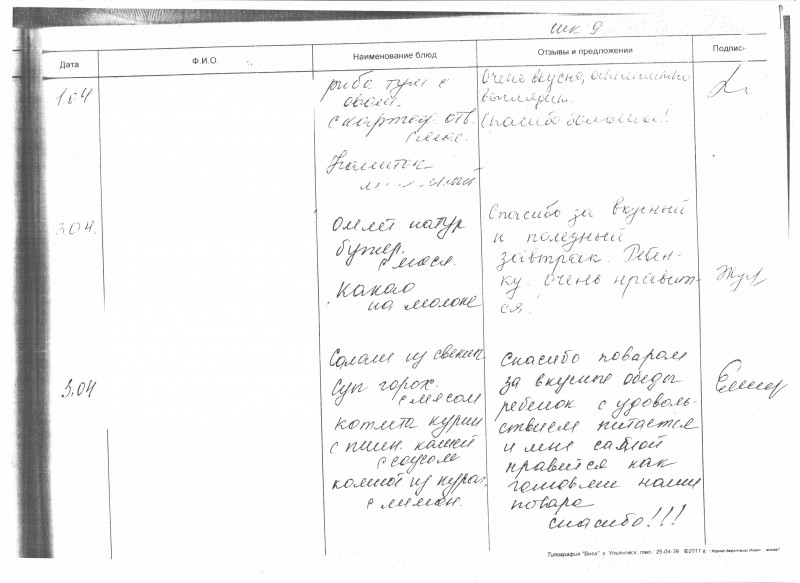 шк 9
Дата Ф.И.О. Наименование блюд Отзывы и предложения Подпис-
1.04 рыба туш с Очень вкусно, аппетитно
овощ. выглядит.
с картоф. отв. Спасибо большое!
с мас.
Напиток
3.04. Омлет натур Спасибо за вкусный
бутер. и полезный
с масл. завтрак. Ребен-
какао ку очень нравит-
на молоке ся!
3.04 Салат из свеклы Спасибо поварам
суп горох. за вкусные обеды
с мясом ребенок с удоволь-
котлета курин ствием питается
с пшен. кашей и мне самой
с соусом нравится как
компот из кураги готовят наши
с лимон. повара
спасибо!!!
Типография "Вега", г. Ульяновск, тел.: 25-04-39 ©2011 г.